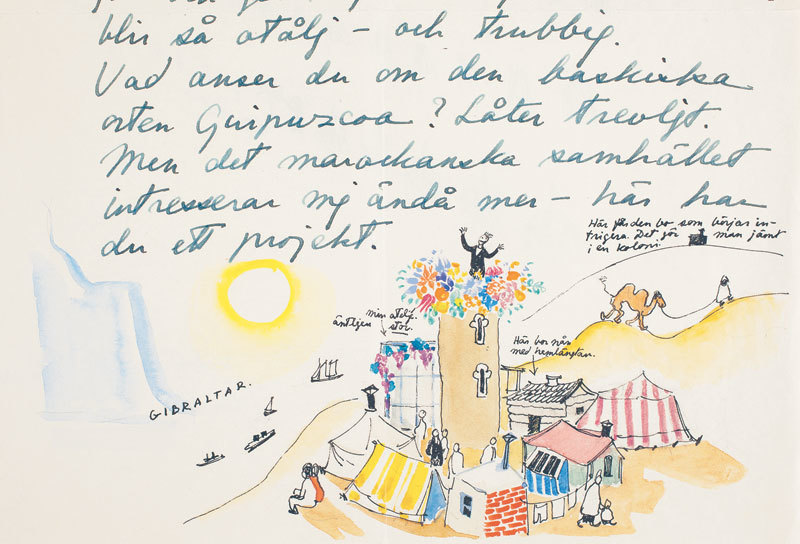 blir så otålj – och trubbig.
Vad anser du om den baskiska
orten Guipuzcoa? Låter trevljt.
Men det marockanska samhället
intresserar mj ändå mer – här har
du ett projekt.
Här får den bo som börjar in-
trigera. Det gör man jämt
i en koloni.
min atelj.
äntljen stor.
Här bor nån
med hemlängtan.
GIBRALTAR.